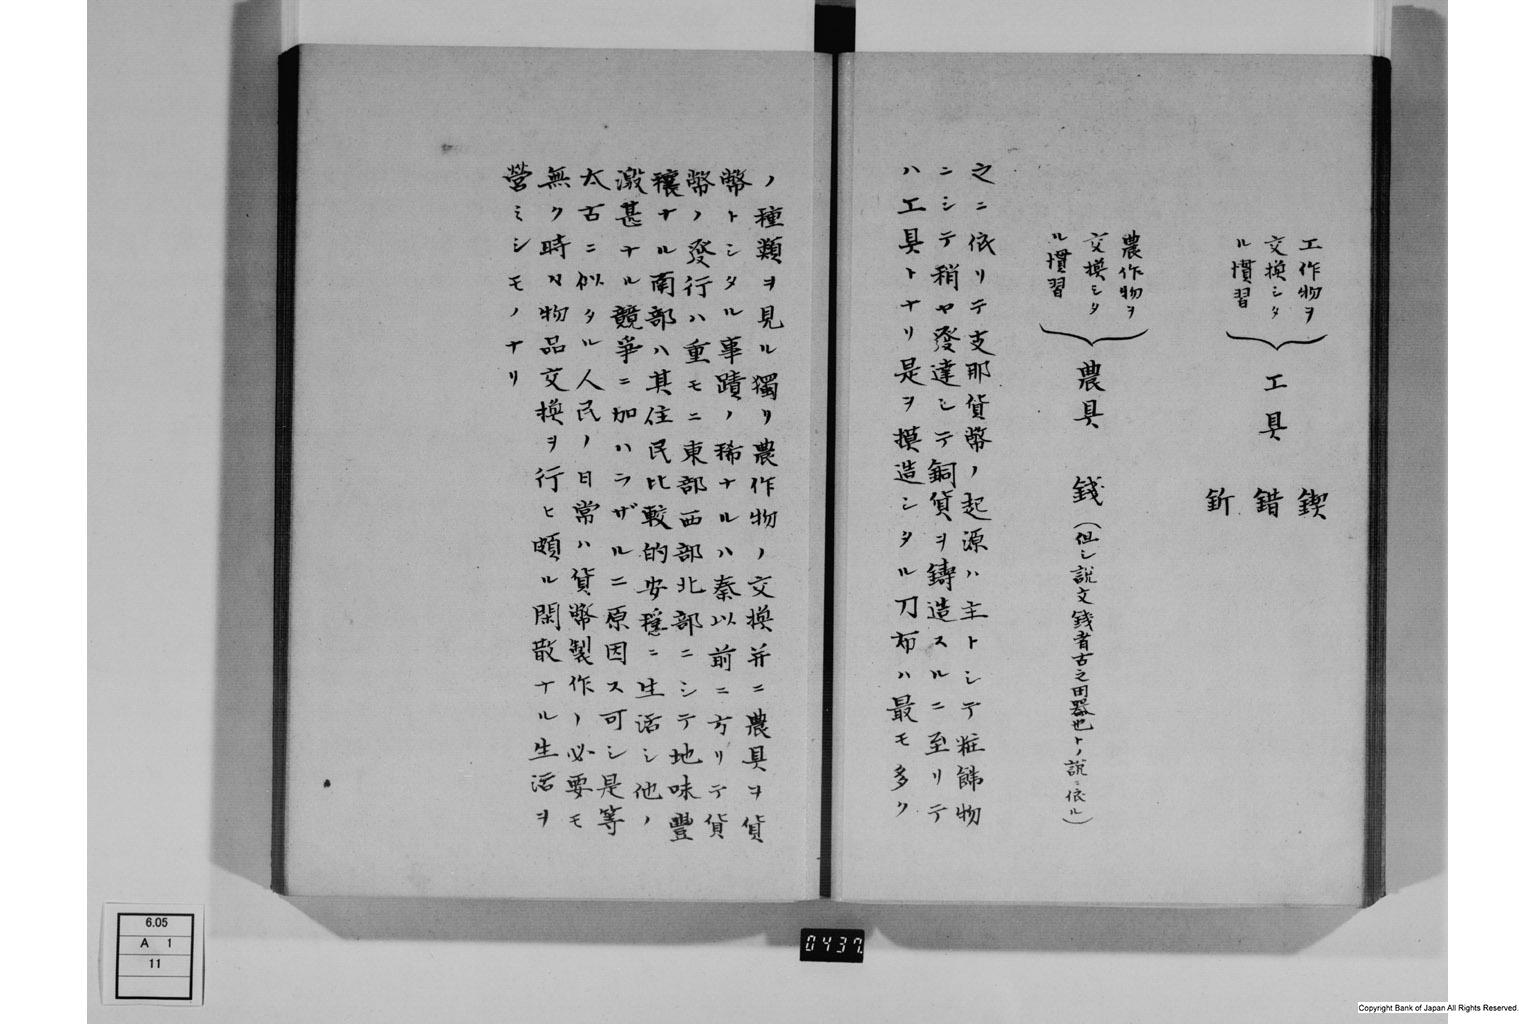 工作物ヲ
交換シタ
ル慣習
工具
鍥
錯
釿
農作物ヲ
交換シタ
ル慣習
農具
錢(但シ説文錢者古之田器也トノ説ニ依ル)
之ニ依リテ支那貨幣ノ起源ハ主トシテ粧飾物
ニシテ稍ヤ發達シテ銅貨ヲ鑄造スルニ至リテ
ハ工具トナリ是ヲ摸造シタル刀布ハ最モ多ク
ノ種類ヲ見ル獨リ農作物ノ交換并ニ農具ヲ貨
幣トシタル事蹟ノ稀ナルハ秦以前ニ方リテ貨
幣ノ發行ハ重モニ東部西部北部ニシテ地味豐
穰ナル南部ハ其住民比較的安穩ニ生活シ他ノ
激甚ナル競爭ニ加ハラザルニ原因ス可シ是等
太古ニ似タル人民ノ日常ハ貨幣製作ノ必要モ
無ク時々物品交換ヲ行ヒ頗ル閑散ナル生活ヲ
營ミシモノナリ
6.05
A 1
11
0437
Copyright Bank of Japan All Rights Reserved.